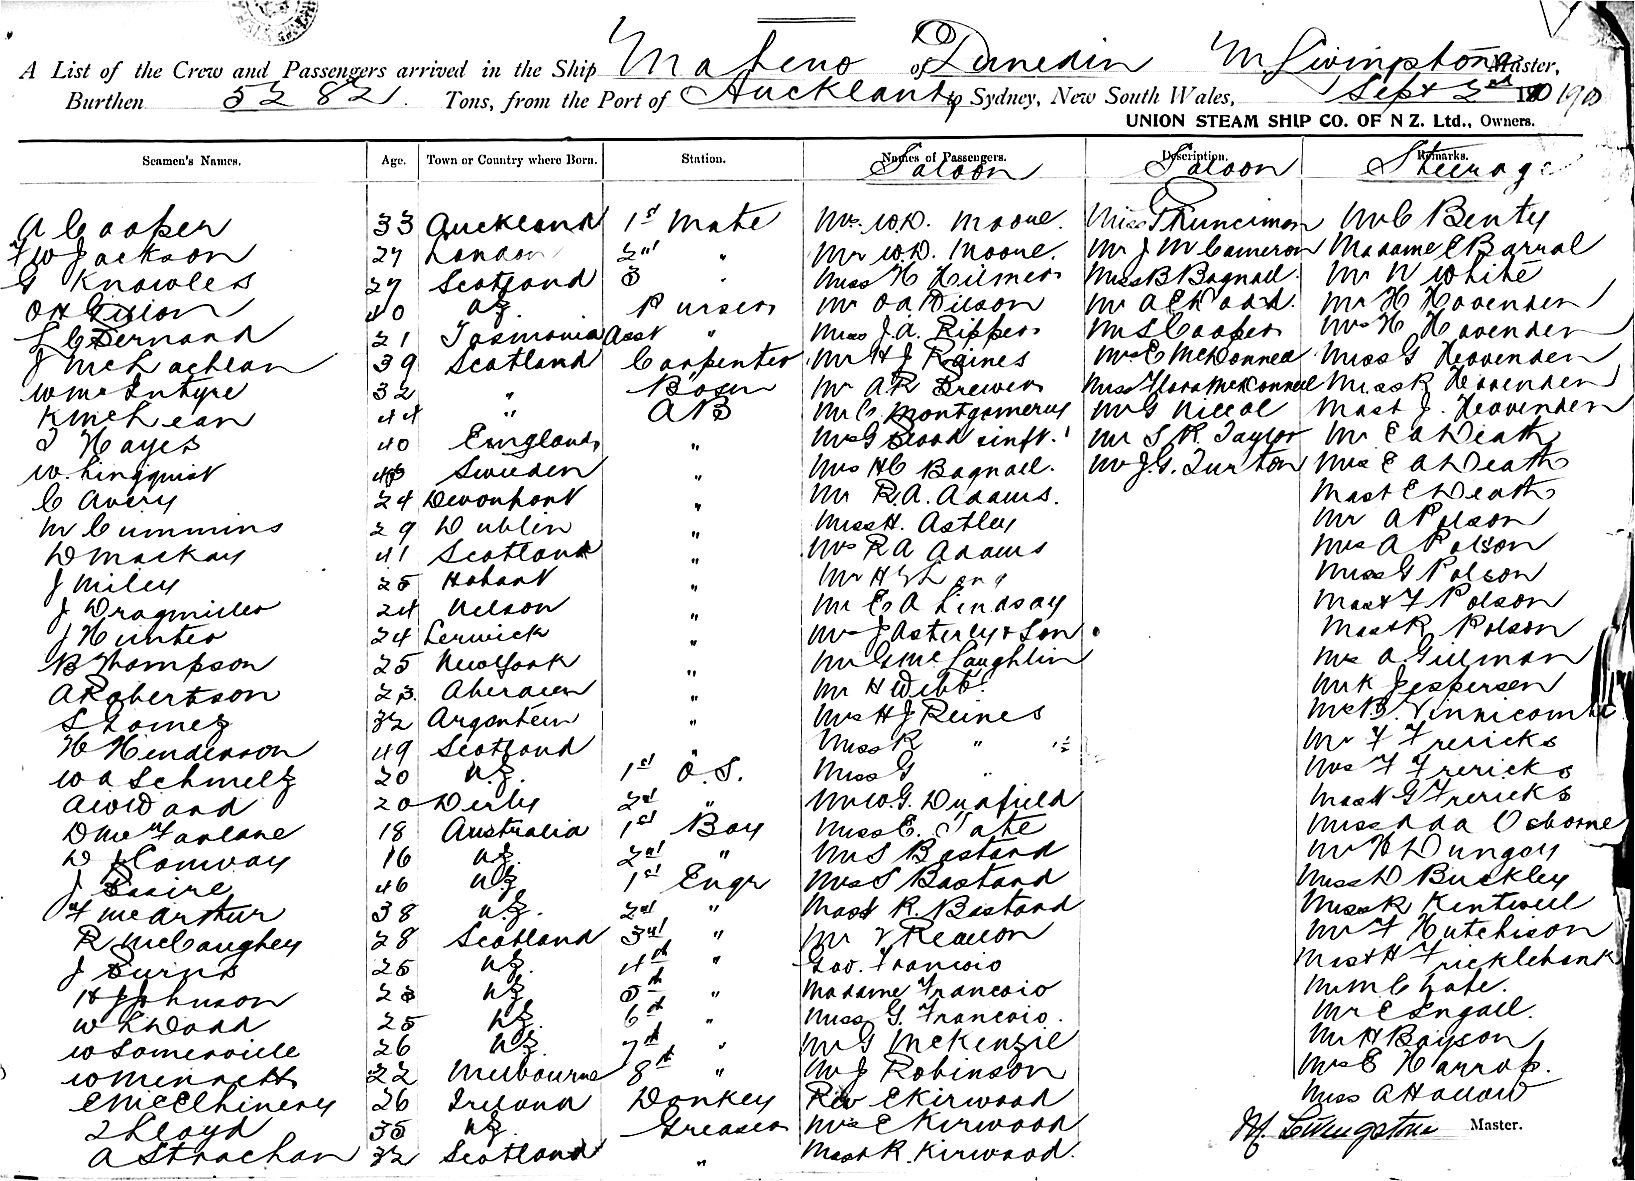 A List of the Crew and Passengers arrived in the Ship Maheno of Dunedin M Livingstone Master,
Burthen 5282 Tons, from the Port of Auckland to Sydney, New South Wales, Sept 2nd 1910
UNION STEAM SHIP CO. OF N Z. Ltd., Owners.
Seamen's Names. Age. Town or Country where Born. Station. Names of Passengers. Description. Remarks.
Saloon Saloon Steerage
A Cooper 33 Auckland 1st Mate Mrs. W.D. Moore. Miss Runciman Mr C Benty
F W Jackson 27 London 2nd " Mr W.D. Moore. Mr J M Cameron Madame E Barral
G Knowles 27 Scotland 3 " Miss H Hilmer Miss B Bagnall. Mr N White
O H Gillon 40 NZ. Purser Mr O A Wilson Mr A E Woard. Mr H Hovenden
L C Bernard 21 Tasmania Asst " Miss J. A. Ripper Mr S Cooper Mrs H Hovenden
J McLachlan 39 Scotland Carpenter Mr H J Reines Mrs E McDonnell Miss G Hovenden
W McIntyre 32 " Bosun Mr A R Brewer Miss Flora McDonnell Miss R Hovenden
K McLean 44 " AB Mr C. Montgomery Mr G Niccol Mast J. Hovenden
T Hayes 40 England " Mrs G Blood & inft. 1 Mr S R Taylor Mr E A Death
W. Lingquist 46 Sweden " Mrs H C Bagnall. Mr J. G. Turton Mrs E A Death
C Avery 24 Devonport " Mr R. A. Adams. Mast E Death
M Cummins 29 Dublin " Miss H. Astley Mr A Polson
D Mackay 41 Scotland " Mrs R A Adams Mrs A Polson
J Miley 25 Hobart " Mr H Long Miss G Polson
J Dragmiller 24 Nelson " Mr E. A Lindsay Mast F Polson
J Hunter 24 Lerwick " Mr J Asterley & Son Mast R Polson
B Thompson 25 New York " Mr G McLaughlin Mrs A. Gillman
A Robertson 23 Aberdeen " Mr H Webb. Mr K Jespersen
S Lomez 32 Argentein " Mrs H J Reines Mr B. Vinnicombe
H Henderson 49 Scotland " Miss R " 1½ Mr F Frericks
W A Schmelz 20 N.Z. 1st O.S. Miss G " Mrs F Frericks
A W Ward 20 Derby 2nd " Mr W. G. Duffield Mast G Frericks
D McFarlane 18 Australia 1st Boy Miss E. Tate Miss Ada Osborne
D Conway 16 NZ. 2nd " Mr S Bastard Mr H Dungey
J Basire 46 NZ 1st Engr Mrs S Bastard Miss D Buckley
F McArthur 38 NZ. 2nd " Mast R. Bastard Miss R Kentwell
R McCaughey 28 Scotland 3rd " Mr V Reardon Mr F Hutchison
J Burns 25 NZ. 4th " Geo. Francois Mast H Fricklebank
H J Johnson 23 NZ 5th " Madame Francois Mr M C Cate.
W L Wood 25 NZ. 6th " Miss G. Francois. Mr E Ingall.
W Somerville 26 NZ 7th " Mr G McKenzie Mr H Boyson
W Mennett 22 Melbourne 8th " Mr J Robinson Mrs E Harrop.
E McElhinery 26 Ireland Donkey Rev E Kirwood Miss A Hollow
L Lloyd 35 NZ. Greaser Mrs E Kirwood M. Livingstone Master.
A Strachan 32 Scotland " Mast R. Kirwood.